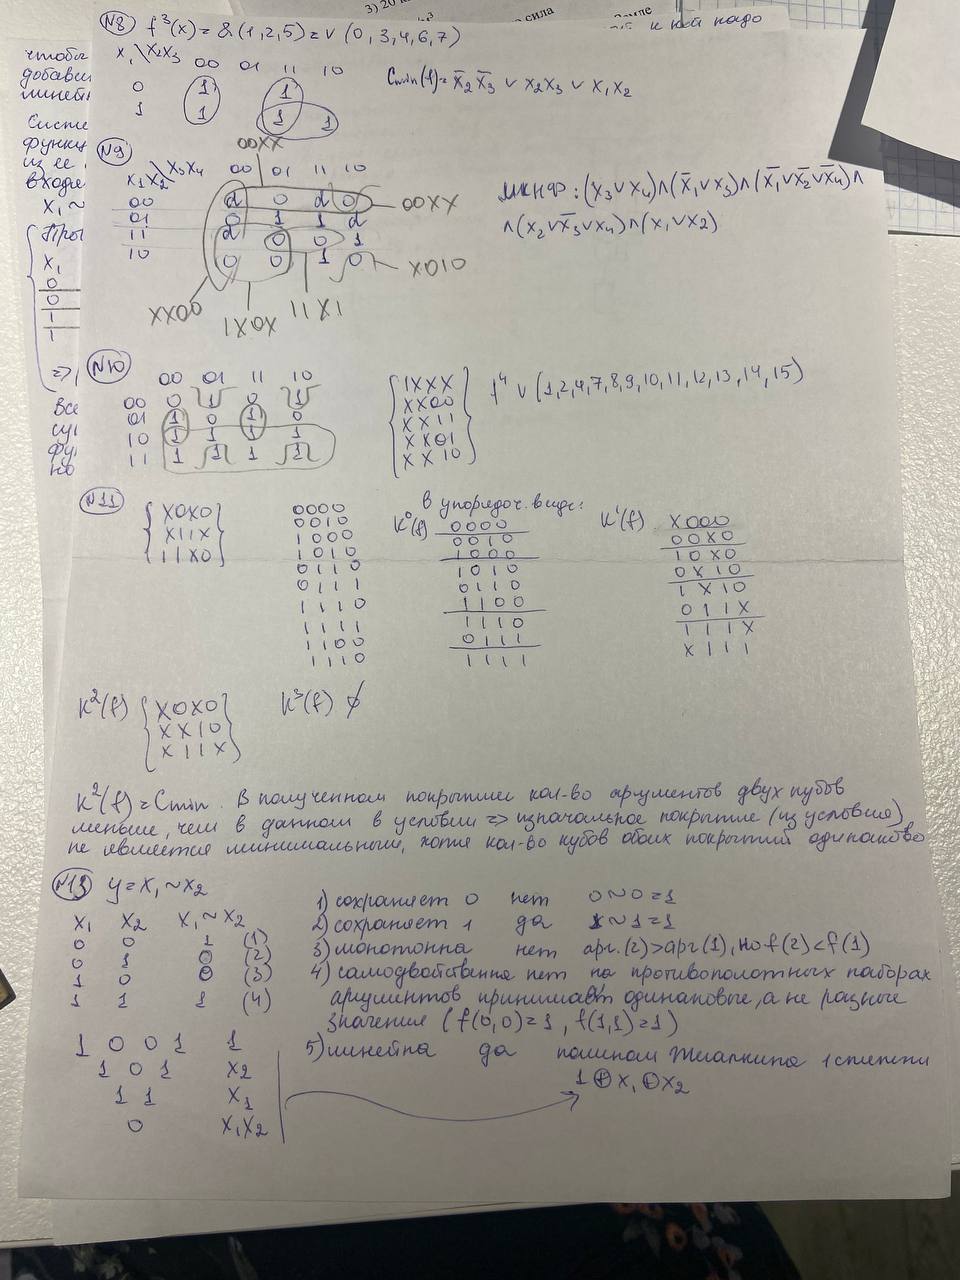 3) 20
сила
N8 f³(x) = &(1,2,5) = v (0, 3, 4, 6, 7)
к ней надо
чтобы
добави
линей
x₁\x₂x₃ 00 01 11 10
0 1 1
1 1 1 1
Cmin(f) = x̄₂x̄₃ v x₂x₃ v x₁x₂
Систе
функц
из ее
входя
N9
00XX
x₁x₂\x₃x₄ 00 01 11 10
00 d 0 d 0
01 0 1 1 d
11 d 0 0 1
10 0 0 1 0
00XX
X010
XX00
1X0X
11X1
МКНФ: (x₃vx₄)∧(x̄₁vx₃)∧(x̄₁vx̄₂vx̄₄)∧
∧(x₂vx̄₃vx₄)∧(x₁vx₂)
x₁ ~
x₁
0
0
1
1
N10
00 01 11 10
00 0 1 0 1
01 1 0 1 0
10 1 1 1 1
11 1 1 1 1
{1XXX
XX00
XX11
XX01
XX10}
f⁴ v (1,2,4,7,8,9,10,11,12,13,14,15)
Все
но
N11
{X0X0
X11X
11X0}
0000
0010
1000
1010
0110
0111
1110
1111
1100
1110
в упорядоч. виде:
K⁰(f) 0000
0010
1000
1010
0110
1100
1110
0111
1111
K¹(f) X000
00X0
10X0
0X10
1X10
011X
111X
X111
K²(f) {X0X0
XX10
X11X}
K³(f) ∅
K²(f) = Cmin. В полученном покрытии кол-во аргументов двух кубов
меньше, чем в данном в условии => изначальное покрытие (из условия)
не является минимальным, хотя кол-во кубов обоих покрытий одинаково
N13 y = x₁ ~ x₂
x₁ x₂ x₁ ~ x₂
0 0 1 (1)
0 1 0 (2)
1 0 0 (3)
1 1 1 (4)
1) сохраняет 0 нет 0 ~ 0 = 1
2) сохраняет 1 да 1 ~ 1 = 1
3) монотонна нет арг.(2)>арг(1), но f(2)<f(1)
4) самодвойственна нет на противоположных наборах
аргументов принимает одинаковые, а не разные
значения (f(0,0)=1, f(1,1)=1)
5) линейна да полином Жегалкина 1 степени
1 ⊕ x₁ ⊕ x₂
1 0 0 1 1
1 0 1 x₂
1 1 x₁
0 x₁x₂